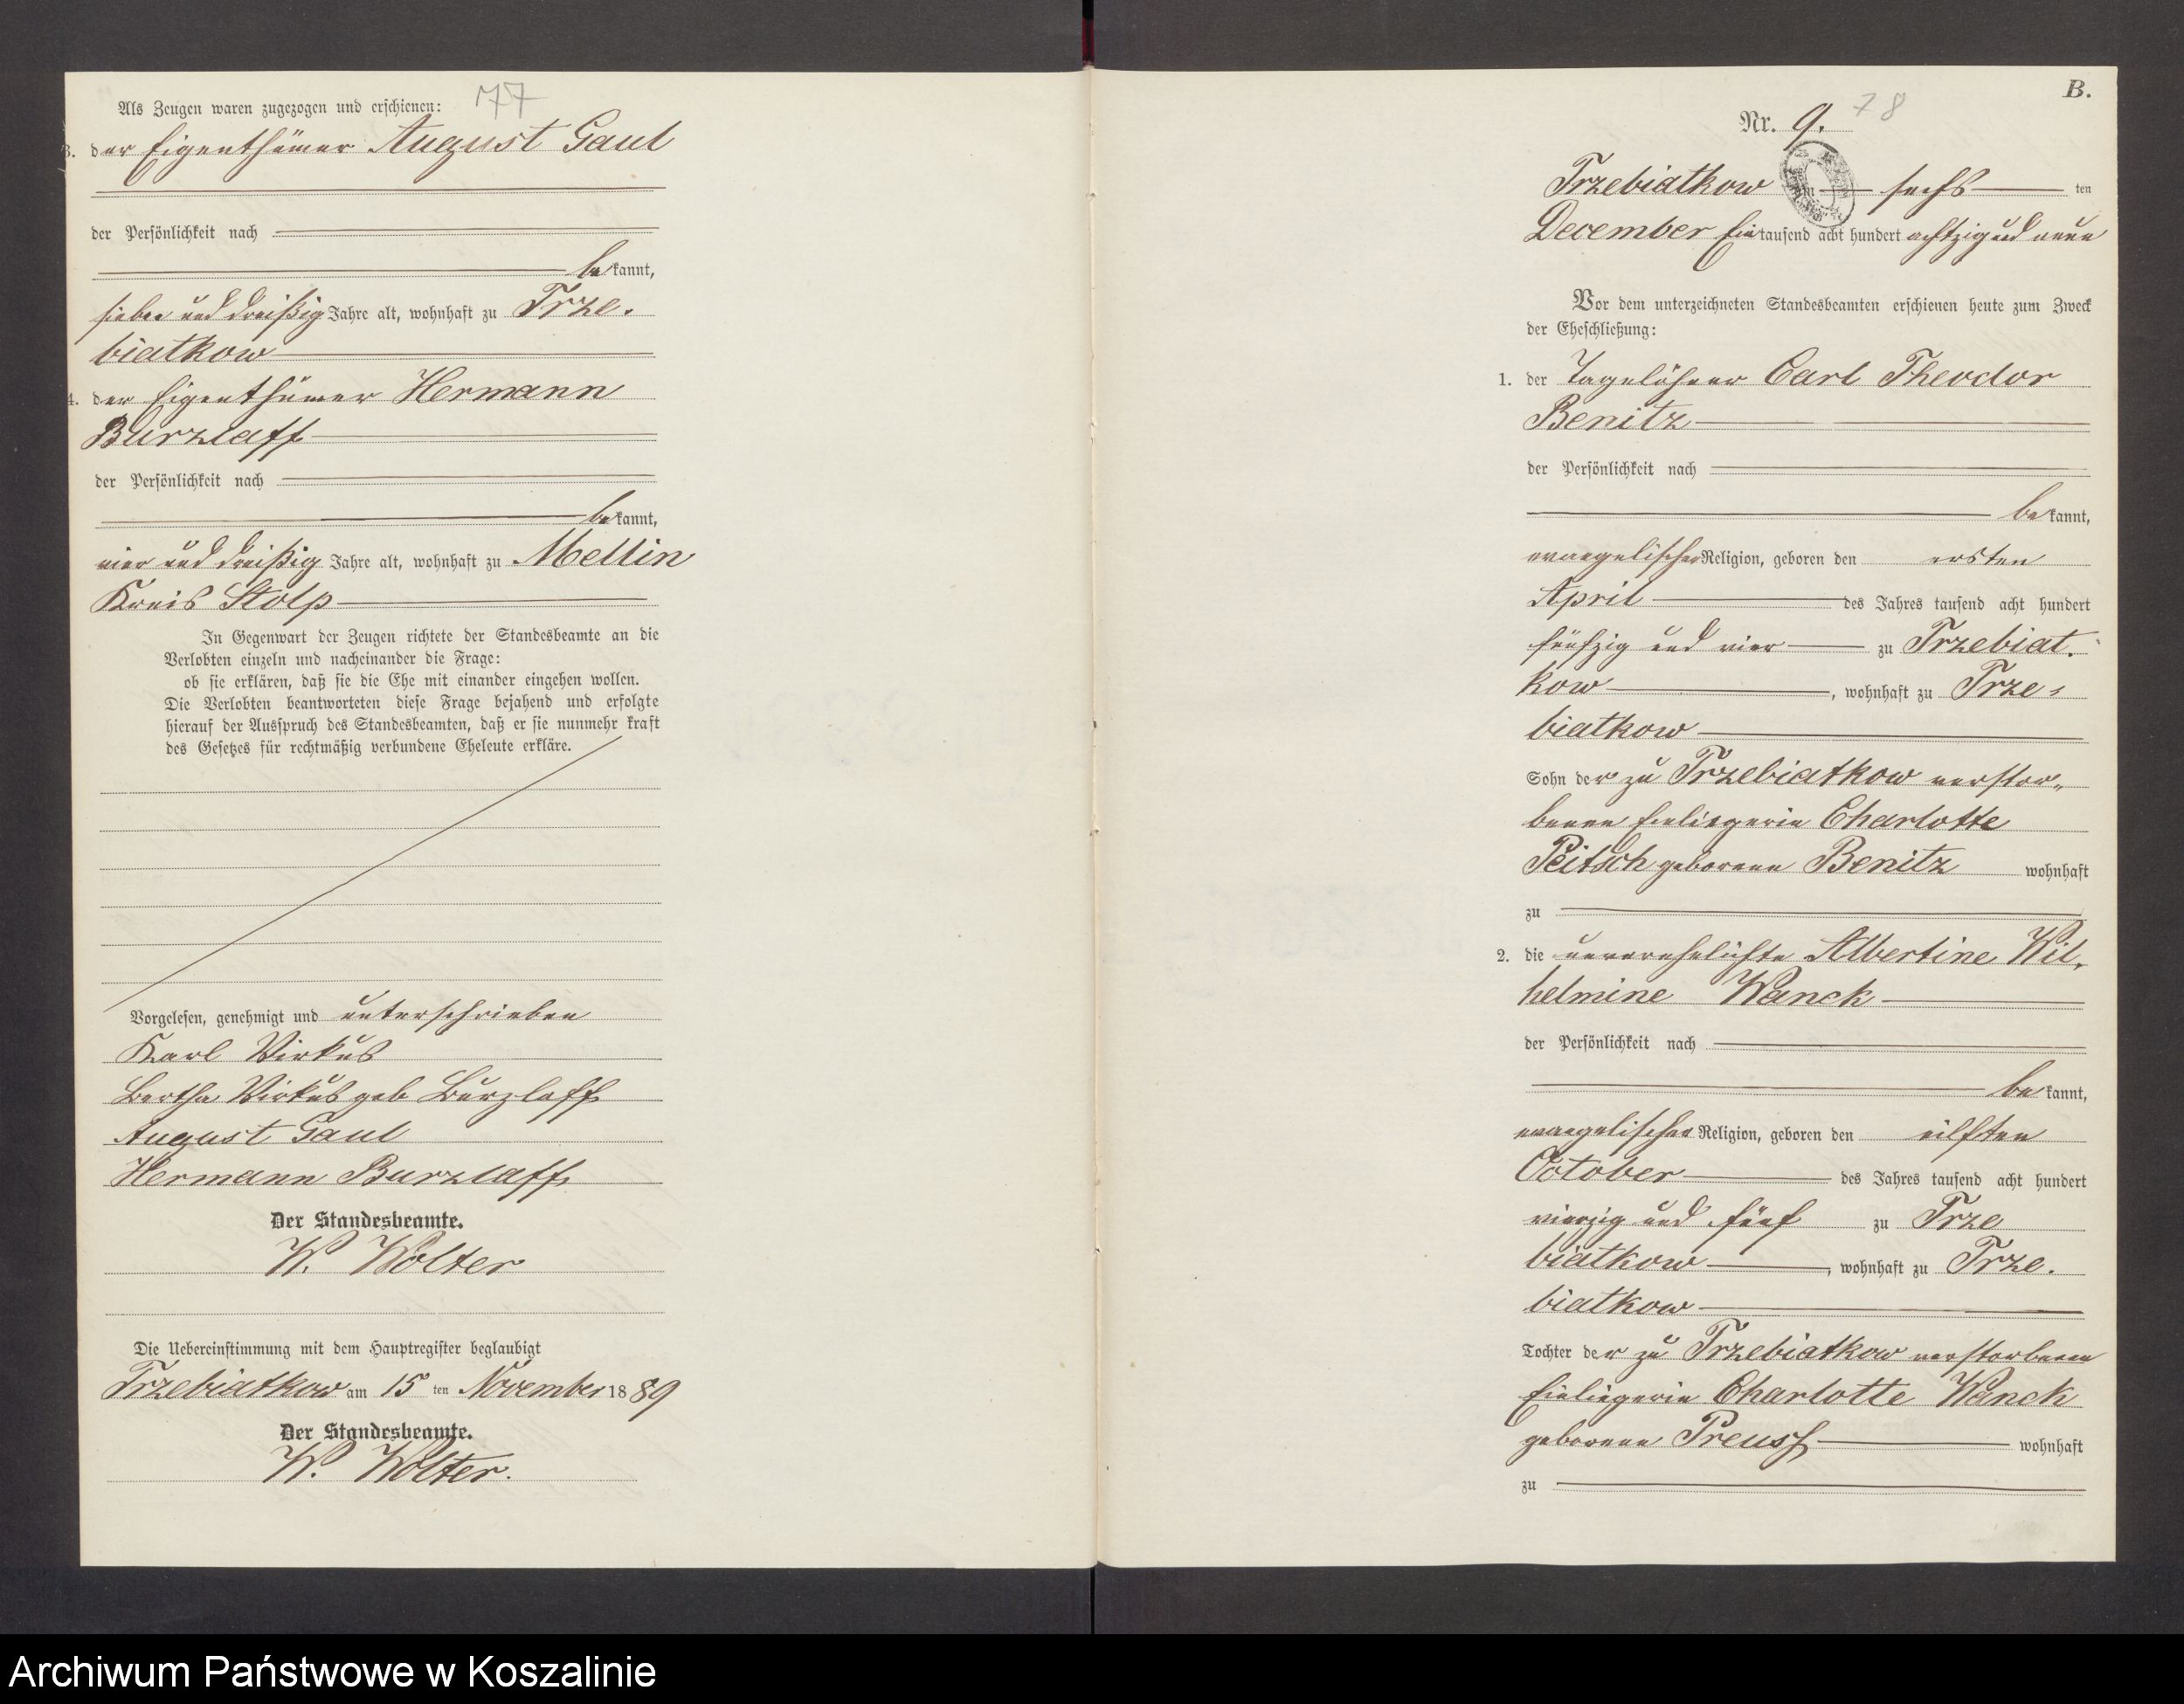 77
Als Zeugen waren zugezogen und erschienen:
3. der Eigenthümer August Gaul
der Persönlichkeit nach
bekannt,
sieben und dreißig Jahre alt, wohnhaft zu Trze-
biatkow
4. der Eigenthümer Hermann
Burzlaff
der Persönlichkeit nach
bekannt,
vier und dreißig Jahre alt, wohnhaft zu Mellin
Kreis Stolp
In Gegenwart der Zeugen richtete der Standesbeamte an die
Verlobten einzeln und nacheinander die Frage:
ob sie erklären, daß sie die Ehe mit einander eingehen wollen.
Die Verlobten beantworteten diese Frage bejahend und erfolgte
hierauf der Ausspruch des Standesbeamten, daß er sie nunmehr kraft
des Gesetzes für rechtmäßig verbundene Eheleute erkläre.
Vorgelesen, genehmigt und unterschrieben
Karl Virkus
Bertha Virkus geb Burzlaff
August Gaul
Hermann Burzlaff
Der Standesbeamte.
W. Wolter
Die Uebereinstimmung mit dem Hauptregister beglaubigt
Trzebiatkow am 15 ten November 1889
Der Standesbeamte.
W. Wolter.
B.
Nr. 9. 78
Trzebiatkow am sechs ten
December Ein tausend acht hundert achtzig und neun
Vor dem unterzeichneten Standesbeamten erschienen heute zum Zweck
der Eheschließung:
1. der Tagelöhner Carl Theodor
Benitz
der Persönlichkeit nach
bekannt,
evangelischer Religion, geboren den ersten
April des Jahres tausend acht hundert
fünfzig und vier zu Trzebiat-
kow, wohnhaft zu Trze-
biatkow
Sohn der zu Trzebiatkow verstor-
benen Einliegerin Charlotte
Peitsch geborene Benitz wohnhaft
zu
2. die unverehelichte Albertine Wil-
helmine Wanck
der Persönlichkeit nach
bekannt,
evangelischer Religion, geboren den eilften
October des Jahres tausend acht hundert
vierzig und fünf zu Trze
biatkow, wohnhaft zu Trze-
biatkow
Tochter der zu Trzebiatkow verstorbenen
Einliegerin Charlotte Wanck
geborene Preuss wohnhaft
zu
Archiwum Państwowe w Koszalinie